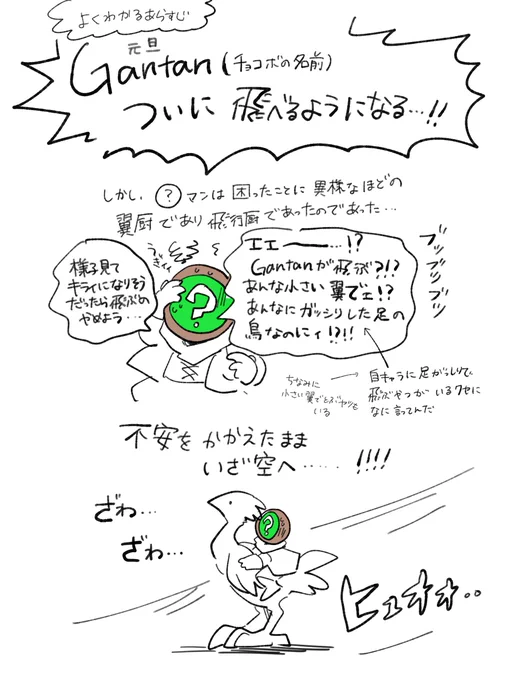 よくわかるあらすじ
元旦
Gantan (チョコボの名前)
ついに 飛べるようになる…!!
しかし、?マンは 困ったことに 異様なほどの
翼厨であり 飛行厨であったのであった…
様子見て
キライになりそう
だったら飛ぶの
やめよう…
エエ――…!?
Gantanが飛ぶ?!?
あんな小さい翼でェ!?
あんなにガッシリした足の
鳥なのにィ!?!!
ブツブツブツ
自キャラに足がっしりで
飛ぶやつが いるクセに
なに言ってんだ
ちなみに
小さい翼でとぶやつも
いる
不安を かかえたまま
いざ空へ…… !!!!
ざわ…
ざわ…
?
ヒュオオォ..